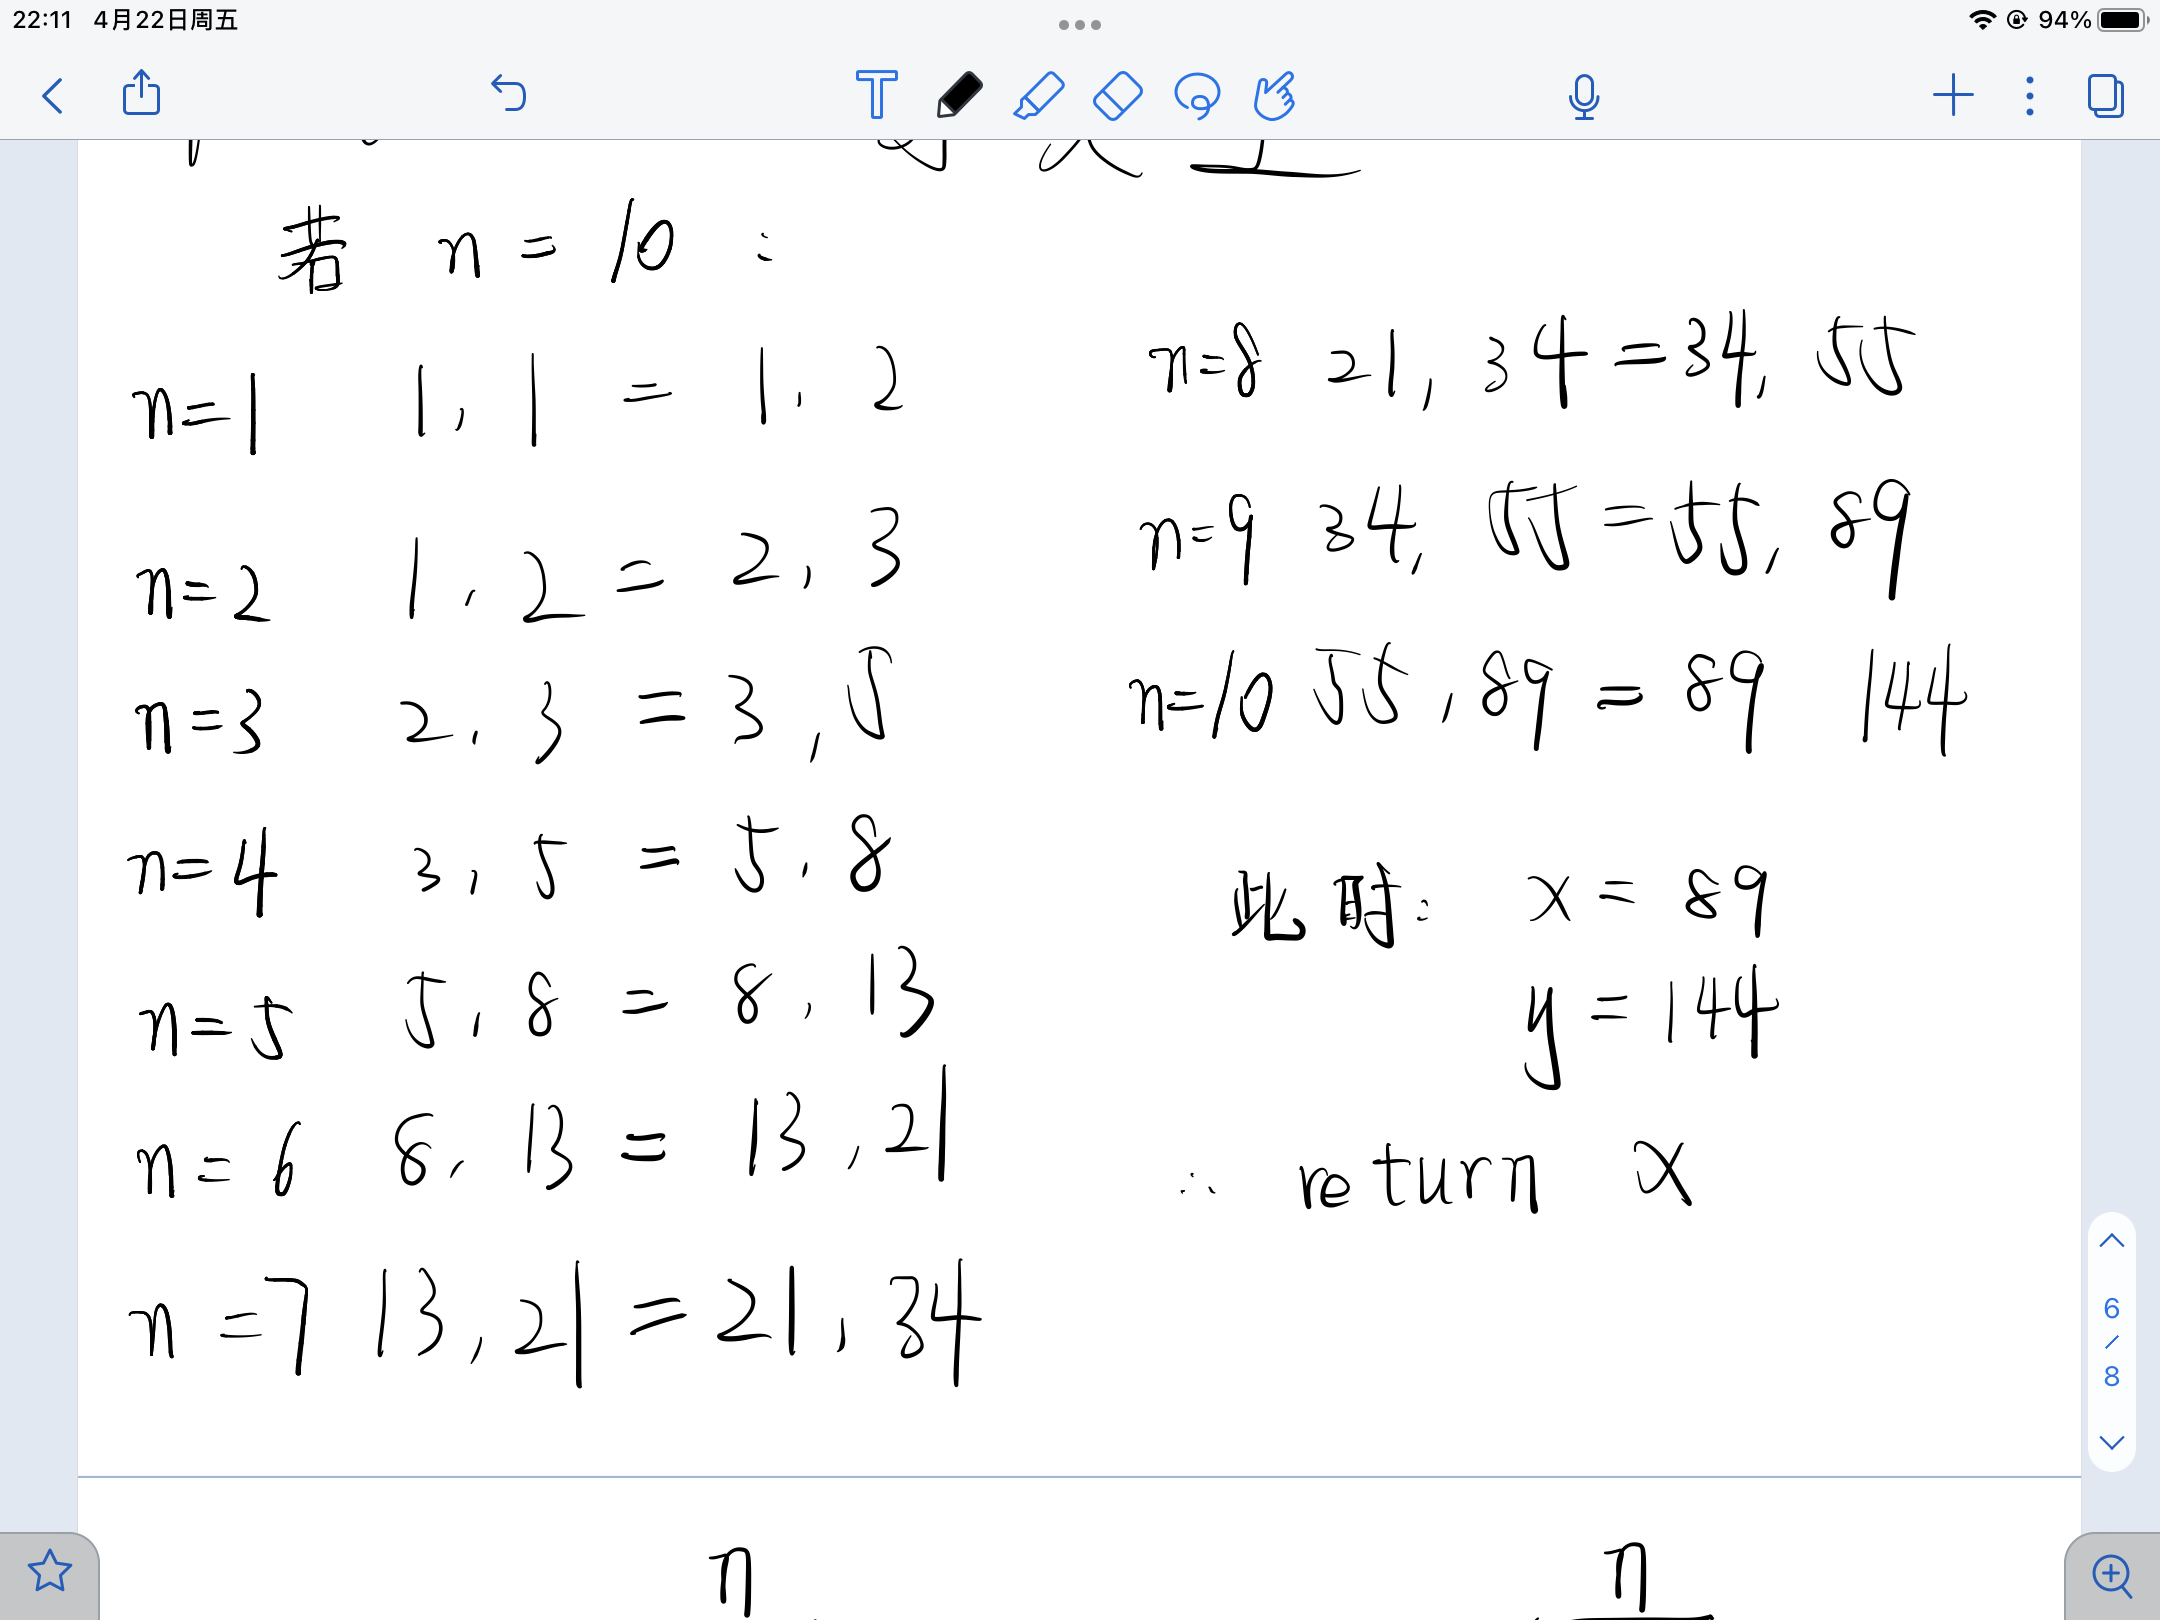 22:11 4月22日周五 94%
若 n = 10 :
n=1 1, 1 = 1, 2
n=2 1, 2 = 2, 3
n=3 2, 3 = 3, 5
n=4 3, 5 = 5, 8
n=5 5, 8 = 8, 13
n=6 8, 13 = 13, 21
n=7 13, 21 = 21, 34
n=8 21, 34 = 34, 55
n=9 34, 55 = 55, 89
n=10 55, 89 = 89 144
此时: x = 89
y = 144
∴ return x
6
/
8
n n